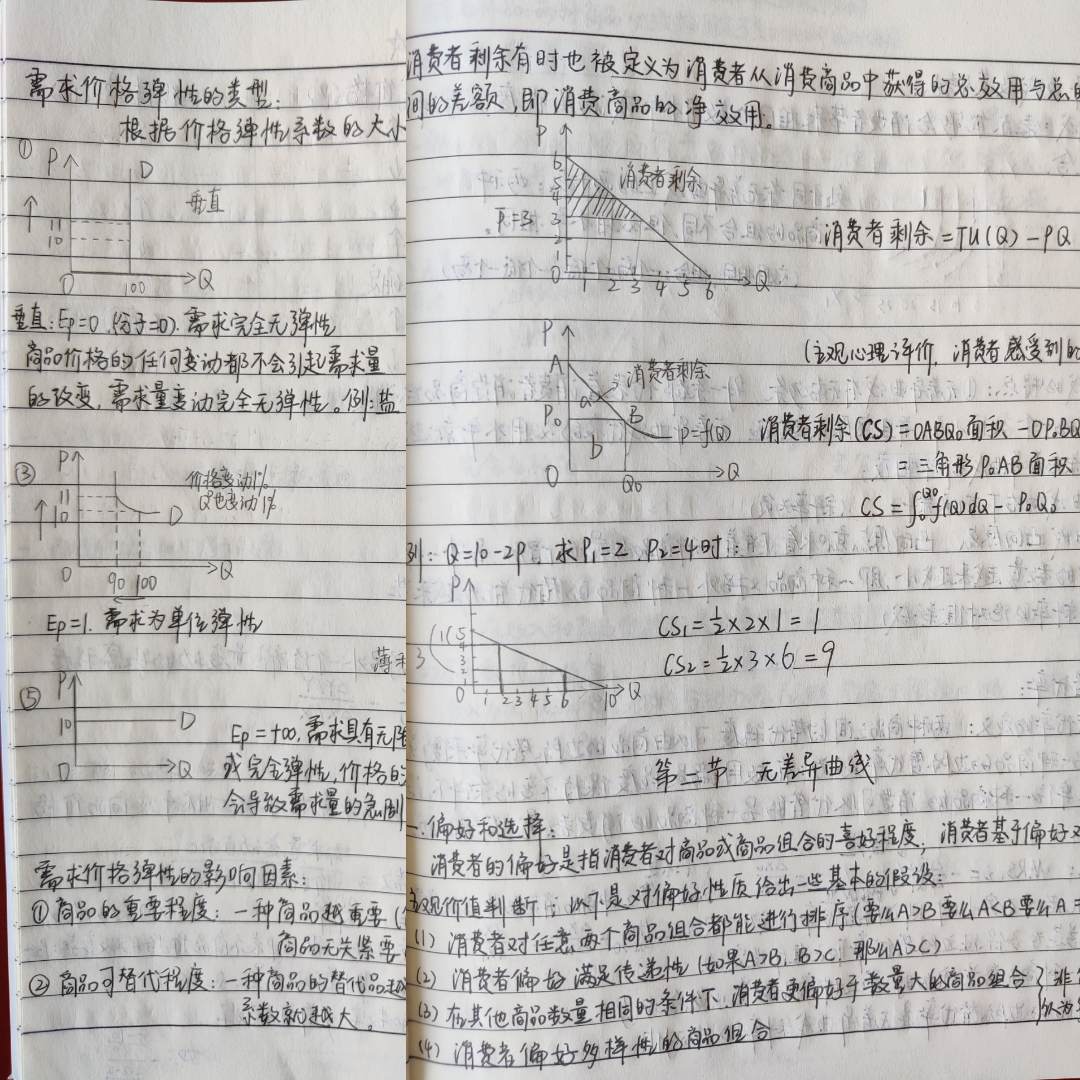 需求价格弹性的类型:
根据价格弹性系数的大小
① P D
垂直
11
10
O 100 Q
垂直:Ep=0.(分子=0).需求完全无弹性
商品价格的任何变动都不会引起需求量
的改变,需求量变动完全无弹性。例:盐
③ P
价格变动1%
Q也变动1%
11
10 D
O 90 100 Q
Ep=1.需求为单位弹性
薄利
⑤ P
10 D
Ep=+∞,需求具有无限
O Q 或完全弹性,价格的
会导致需求量的急剧
需求价格弹性的影响因素:
①商品的重要程度:一种商品越重要(
商品无关紧要
②商品可替代程度:一种商品的替代品越
系数就越大。
消费者剩余有时也被定义为消费者从消费商品中获得的总效用与总
间的差额,即消费商品的净效用。
P
6
5
4
消费者剩余
P=3
2
1
O 1 2 3 4 5 6 Q
消费者剩余=TU(Q)-PQ
(主观心理评价,消费者感受到的
P
A
消费者剩余
a
P₀ B P=f(Q)
b
O Q₀ Q
消费者剩余(CS)=OABQ₀面积-OP₀BQ
=三角形P₀AB面积
CS=∫₀^Q₀ f(Q)dQ-P₀Q₀
例:Q=10-2P,求P₁=2,P₂=4时:
P
1 5
4
3 3
2
1
O 1 2 3 4 5 6 10 Q
CS₁=½×2×1=1
CS₂=½×3×6=9
第二节 无差异曲线
一.偏好和选择:
消费者的偏好是指消费者对商品或商品组合的喜好程度,消费者基于偏好对
主观价值判断;以下是对偏好性质给出一些基本的假设:
(1)消费者对任意两个商品组合都能进行排序(要么A>B要么A<B要么A=
(2)消费者偏好满足传递性(如果A>B,B>C,那么A>C)
(3)在其他商品数量相同的条件下,消费者更偏好于数量大的商品组合
(4)消费者偏好多样性的商品组合